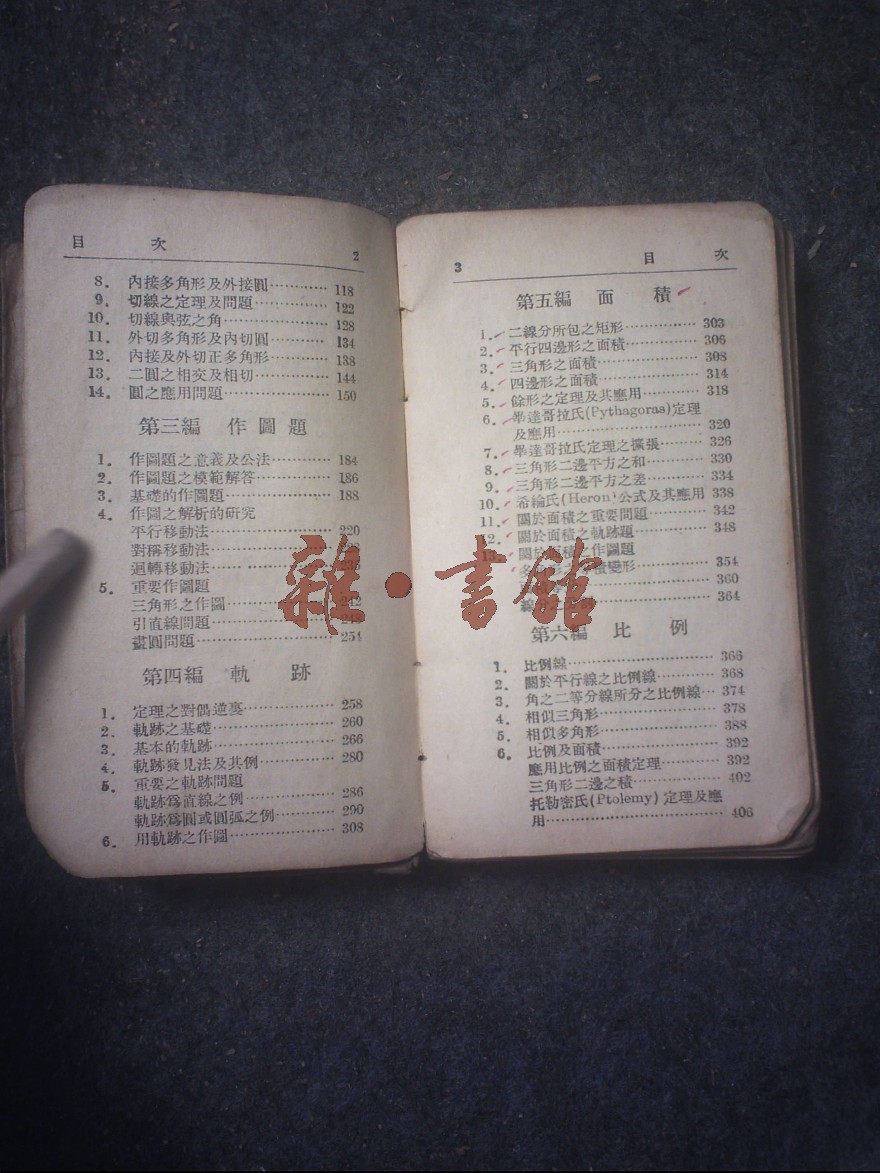 目 次 2
8. 內接多角形及外接圓………… 118
9. 切線之定理及問題………… 122
10. 切線與弦之角………… 128
11. 外切多角形及內切圓………… 134
12. 內接及外切正多角形………… 138
13. 二圓之相交及相切………… 144
14. 圓之應用問題………… 150
第三編 作圖題
1. 作圖題之意義及公法………… 184
2. 作圖題之模範解答………… 186
3. 基礎的作圖題………… 188
4. 作圖之解析的研究
平行移動法………… 220
對稱移動法…………
迴轉移動法…………
5. 重要作圖題
三角形之作圖………… 242
引直線問題…………
畫圓問題………… 254
第四編 軌 跡
1. 定理之對偶逆裏………… 258
2. 軌跡之基礎………… 260
3. 基本的軌跡………… 266
4. 軌跡發見法及其例………… 280
5. 重要之軌跡問題
軌跡爲直線之例………… 286
軌跡爲圓或圓弧之例………… 290
6. 用軌跡之作圖………… 308
3 目 次
第五編 面 積
1. 二線分所包之矩形………… 303
2. 平行四邊形之面積………… 306
3. 三角形之面積………… 308
4. 四邊形之面積………… 314
5. 餘形之定理及其應用………… 318
6. 畢達哥拉氏(Pythagoras)定理
及應用………… 320
7. 畢達哥拉氏定理之擴張………… 326
8. 三角形二邊平方之和………… 330
9. 三角形二邊平方之差………… 334
10. 希綸氏(Heron)公式及其應用 338
11. 關於面積之重要問題………… 342
12. 關於面積之軌跡題………… 348
13. 關於面積之作圖題
多角形之等積變形………… 354
………… 360
364
第六編 比 例
1. 比例線………… 366
2. 關於平行線之比例線………… 368
3. 角之二等分線所分之比例線… 374
4. 相似三角形………… 378
5. 相似多角形………… 388
6. 比例及面積………… 392
應用比例之面積定理………… 392
三角形二邊之積………… 402
托勒密氏(Ptolemy)定理及應
用………… 406
雜·書館